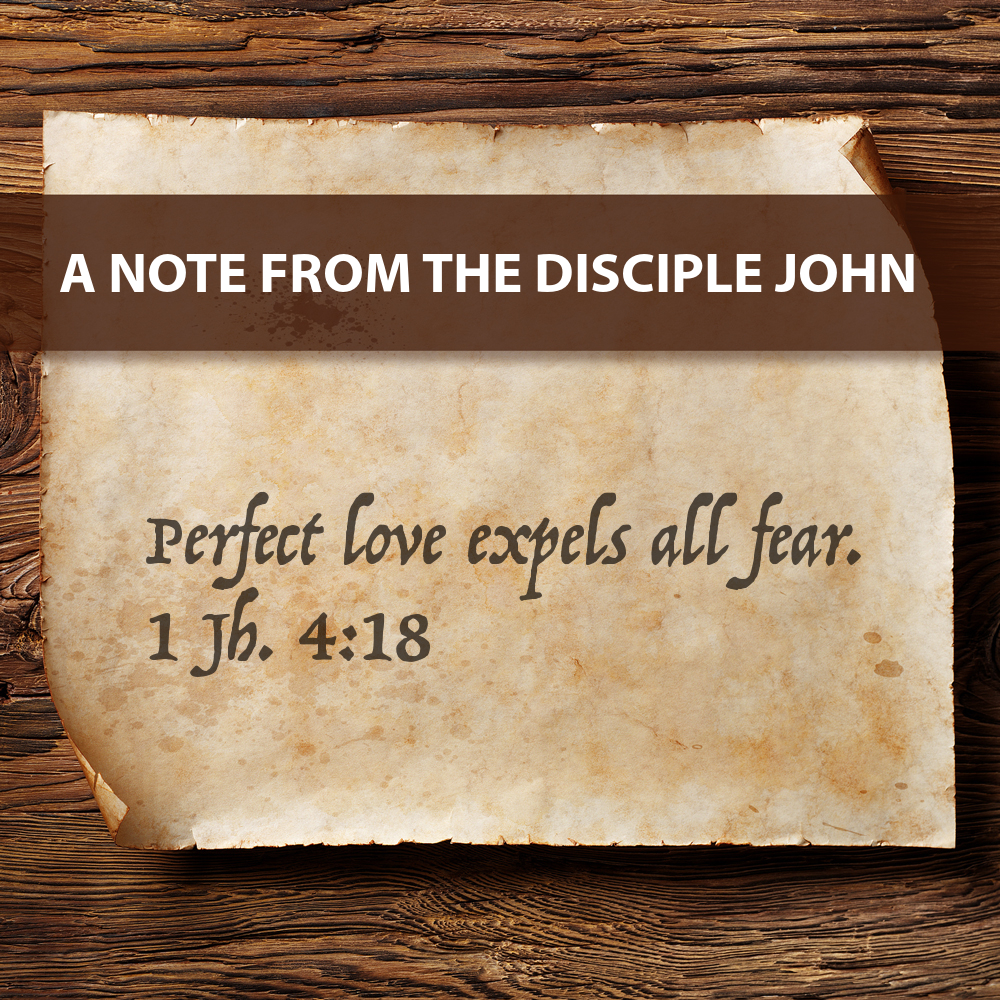 A NOTE FROM THE DISCIPLE JOHN
Perfect love expels all fear.
1 Jh. 4:18